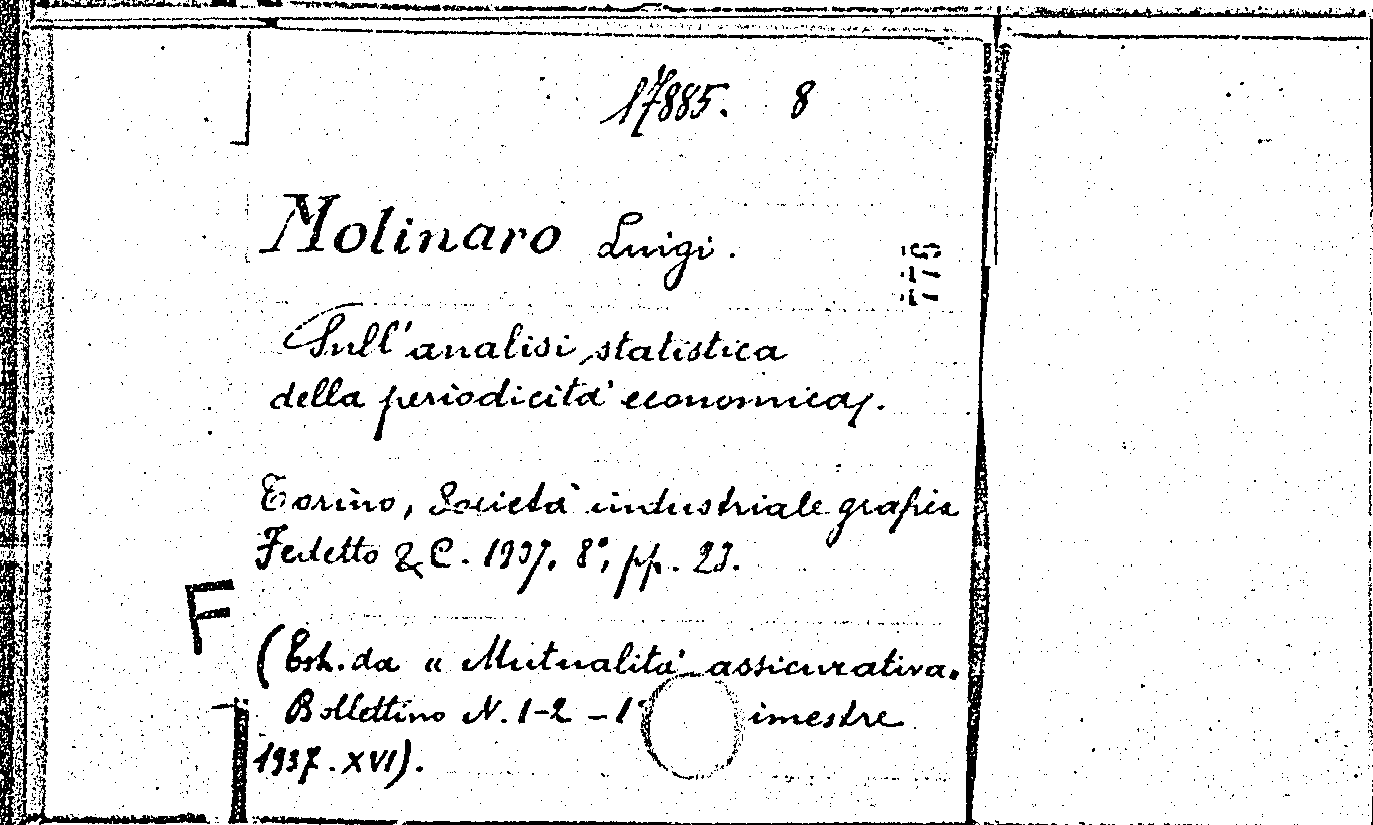 17885. 8
Molinaro Luigi.
779
Sull'analisi statistica
della periodicità economica.
Torino, Società industriale grafica
Fedetto & C. 1937. 8°, pp. 23.
F
(Estr. da " Mutualità assicurativa.
Bollettino N. 1-2 - 1° imestre
1937. XVI).